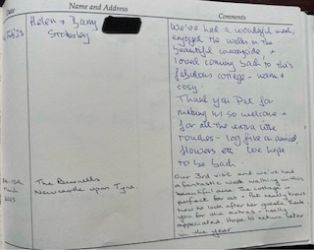 Name and Address
Comments
Helen & Barry
We've had a wonderful week,
enjoyed the walks in the
beautiful countryside &
loved coming back to this
fabulous cottage - warm &
cosy.
Thank you Pat for
making us so welcome &
for all the extra little
touches - log fire on arrival,
flowers etc. We hope
to be back
Our 3rd visit and we've had
a fantastic week walking in this
beautiful area. The cottage is
perfect for us & Pat really knows
how to look after her guests. Thank
you for the extras - really
appreciated. Hope to return later
in the year
The
Newcastle upon Tyne